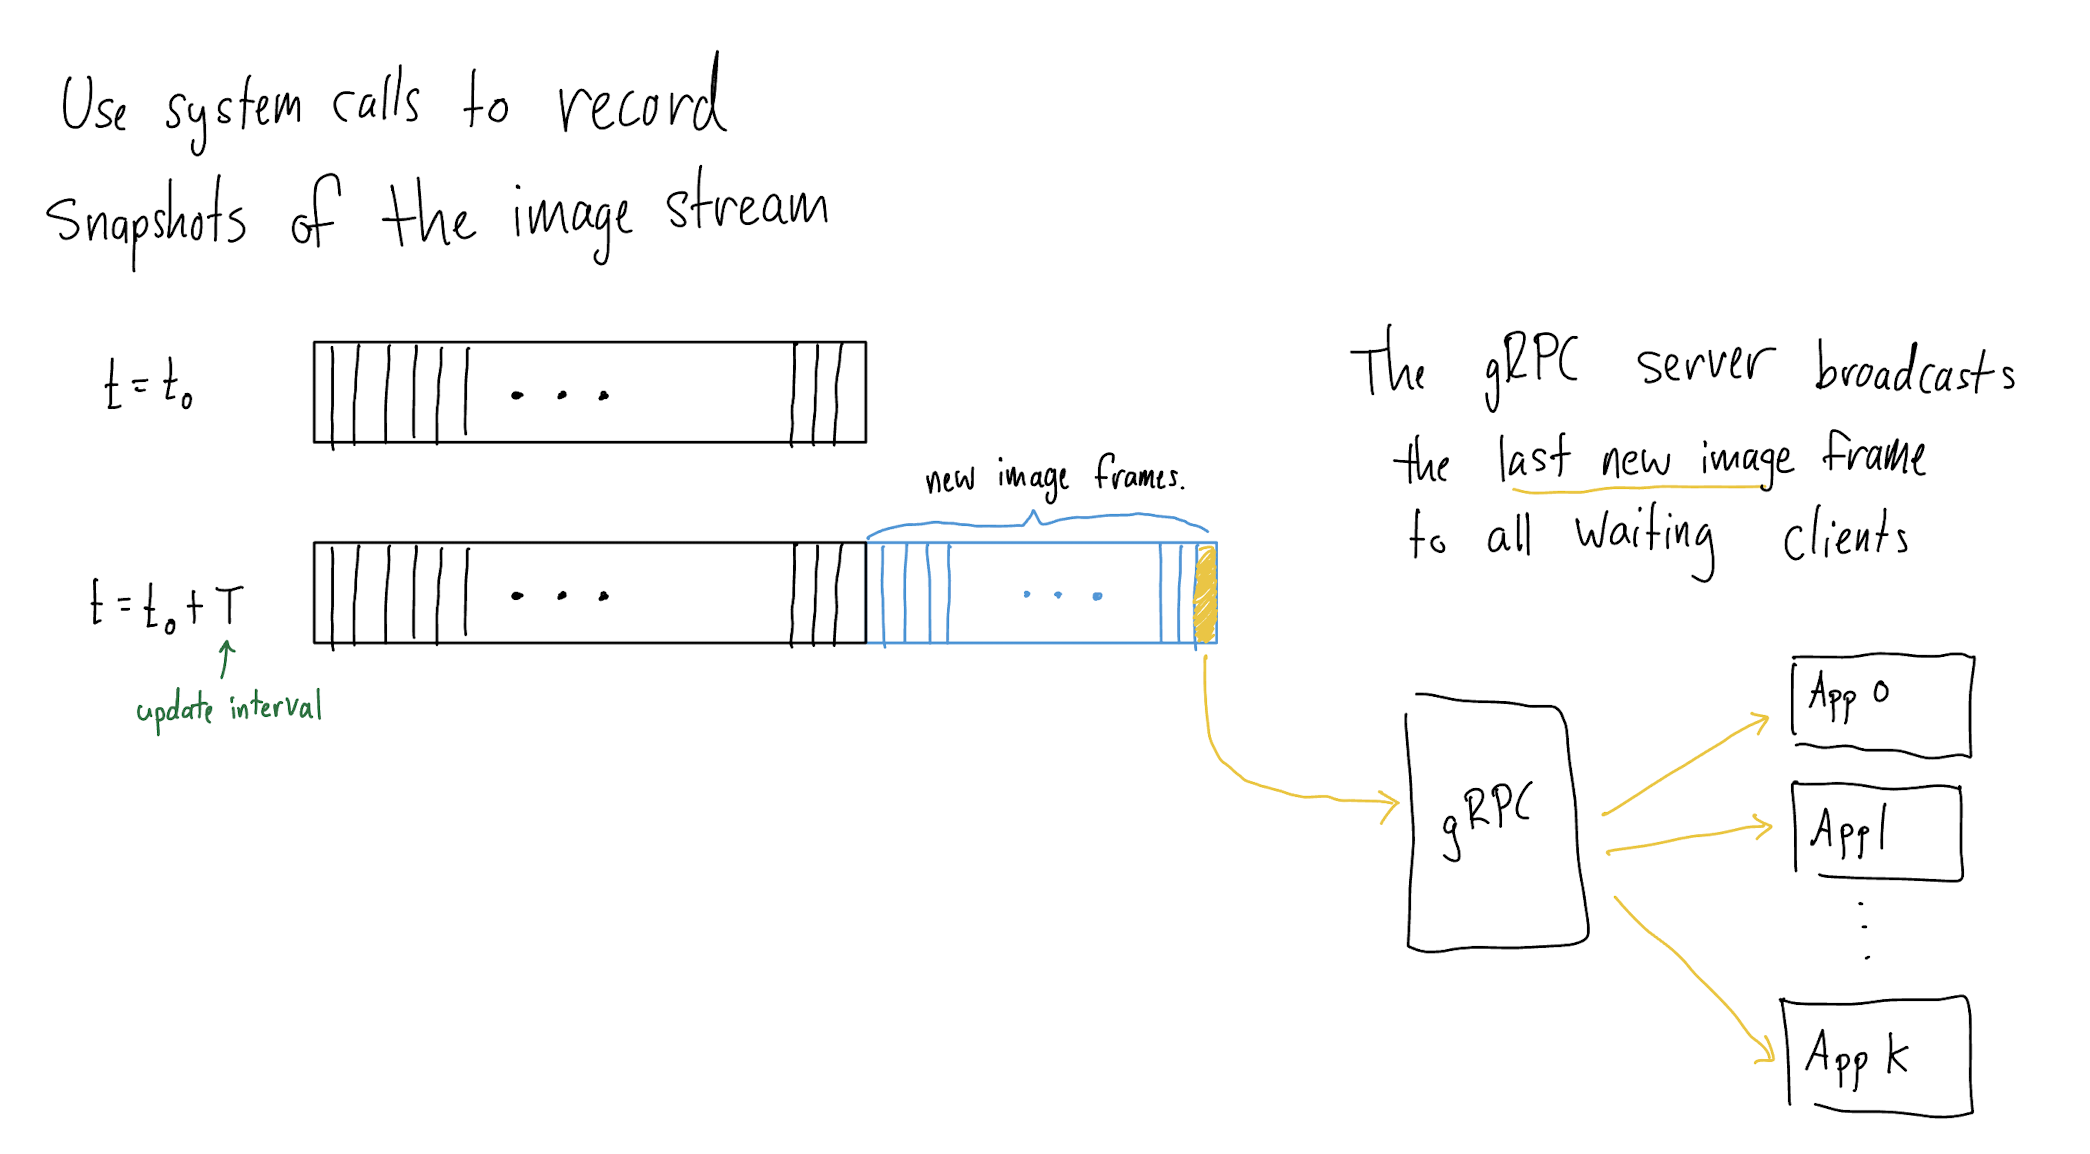 Use system calls to record
Snapshots of the image stream
t = t₀
new image frames.
t = t₀ + T
update interval
The gRPC server broadcasts
the last new image frame
to all waiting clients
gRPC
App 0
App 1
App k